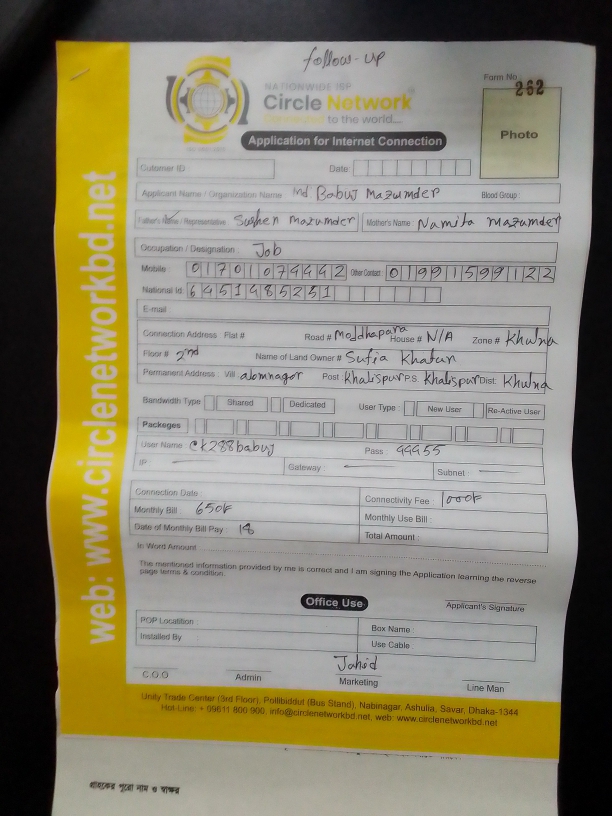 follow-up
NATIONWIDE ISP
Circle Network
Connected to the world....
Form No
262
Photo
Application for Internet Connection
Cutomer ID : Date:
Applicant Name / Organization Name : Md Babuj Mazumder Blood Group :
Father's Name / Representative : Sushen Mazumder Mother's Name : Namita Mazumder
Occupation / Designation : Job
Mobile : Other Contact : 01991599122
National Id:
E-mail
Connection Address : Flat # Road # Moddhapara House # N/A Zone # Khulna
Floor # 2nd Name of Land Owner # Sufia Khatun
Permanent Address : Vill alomnagor Post Khalispur P.S Khalispur Dist: Khulna
Bandwidth Type Shared Dedicated User Type : New User Re-Active User
Packeges
User Name : ck288babuj Pass 99955
IP : Gateway : Subnet :
Connection Date Connectivity Fee 1000/-
Monthly Bill : 650/- Monthly Use Bill :
Date of Monthly Bill Pay : Total Amount :
In Word Amount
The mentioned information provided by me is correct and I am signing the Application learning the reverse
page terms & condition.
Applicant's Signature
Office Use
POP Locatition : Box Name :
Installed By Use Cable :
Jahid
C.O.O Admin Marketing Line Man
Unity Trade Center (3rd Floor), Pollibiddut (Bus Stand), Nabinagar, Ashulia, Savar, Dhaka-1344
Hot-Line: + 99611 800 900, info@circlenetworkbd.net, web: www.circlenetworkbd.net
web: www.circlenetworkbd.net
গ্রাহকের পুরো নাম ও স্বাক্ষর